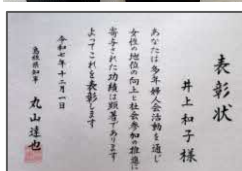 表彰状
井上和子様
あなたは多年婦人会活動を通じ
女性の地位の向上と社会参加の推進に
寄与された功績は顕著であります
よってこれを表彰します
令和七年十二月一日
島根県知事 丸山達也